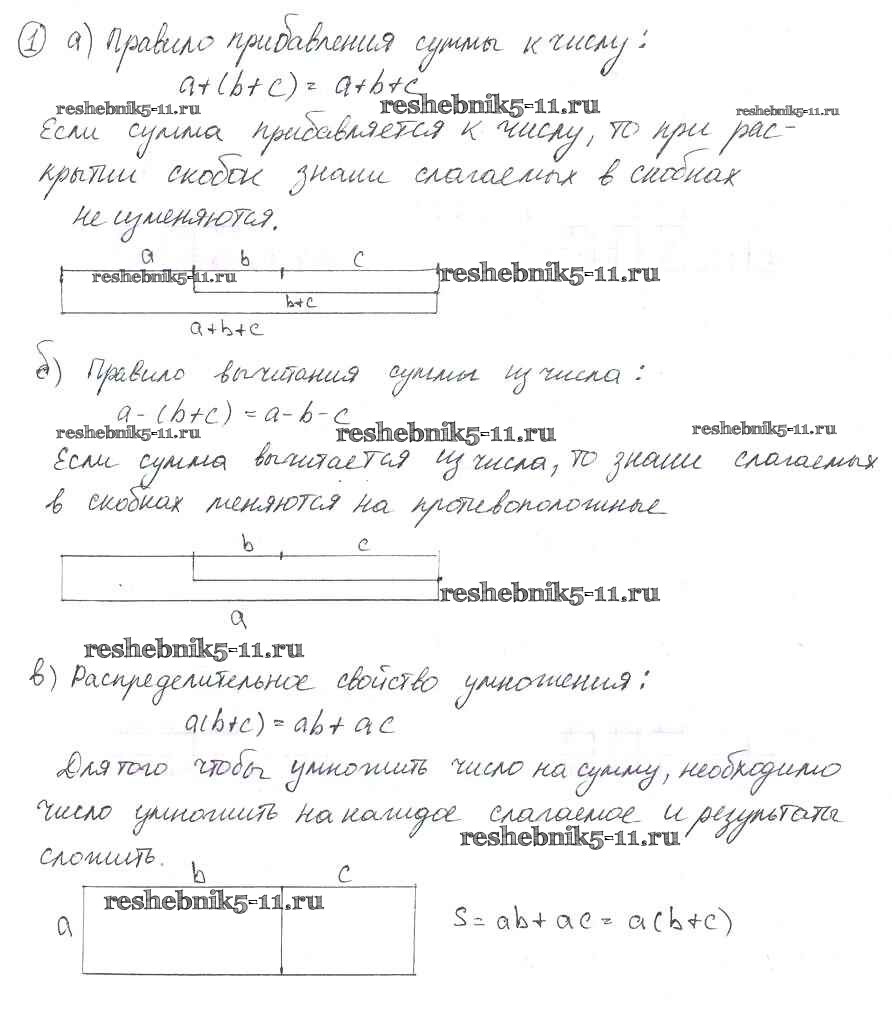 1 а) Правило прибавления суммы к числу:
a+(b+c)= a+b+c
reshebnik5-11.ru reshebnik5-11.ru reshebnik5-11.ru
Если сумма прибавляется к числу, то при рас-
крытии скобок знаки слагаемых в скобках
не изменяются.
a b c
reshebnik5-11.ru reshebnik5-11.ru
b+c
a+b+c
б) Правило вычитания суммы из числа:
a-(b+c)=a-b-c
reshebnik5-11.ru reshebnik5-11.ru reshebnik5-11.ru
Если сумма вычитается из числа, то знаки слагаемых
в скобках меняются на противоположные
b c
reshebnik5-11.ru
a
reshebnik5-11.ru
в) Распределительное свойство умножения:
a(b+c)=ab+ac
Для того чтобы умножить число на сумму, необходимо
число умножить на каждое слагаемое и результаты
reshebnik5-11.ru
сложить.
b c
reshebnik5-11.ru
a S= ab+ac= a(b+c)